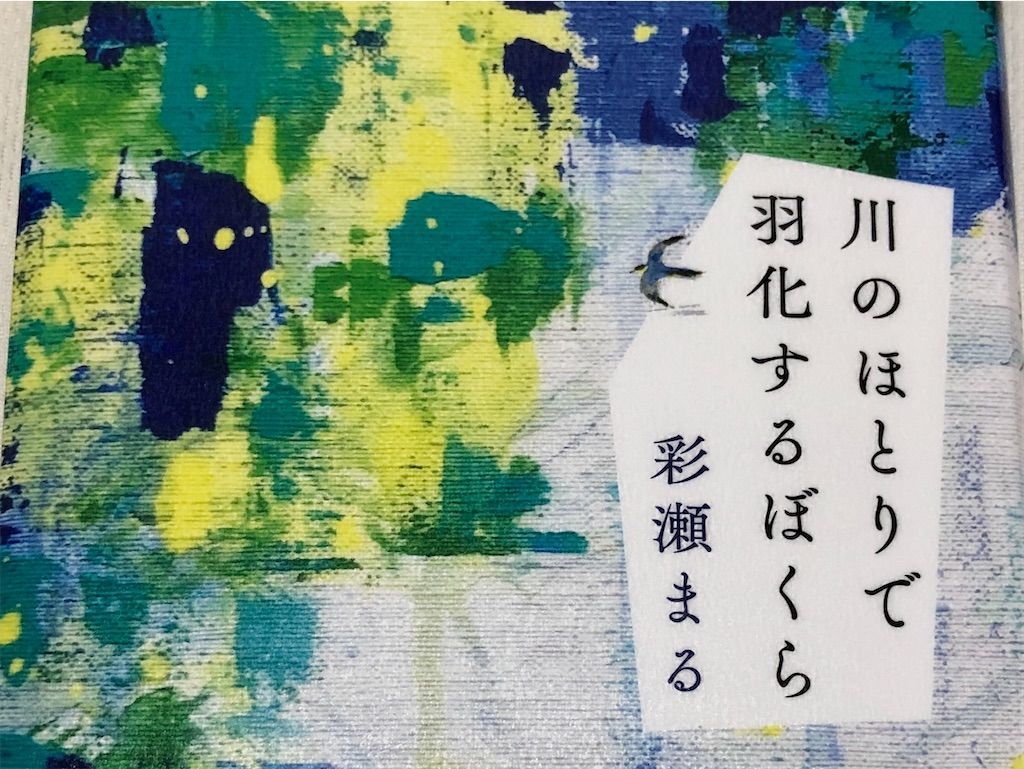 川のほとりで
羽化するぼくら
彩瀬まる